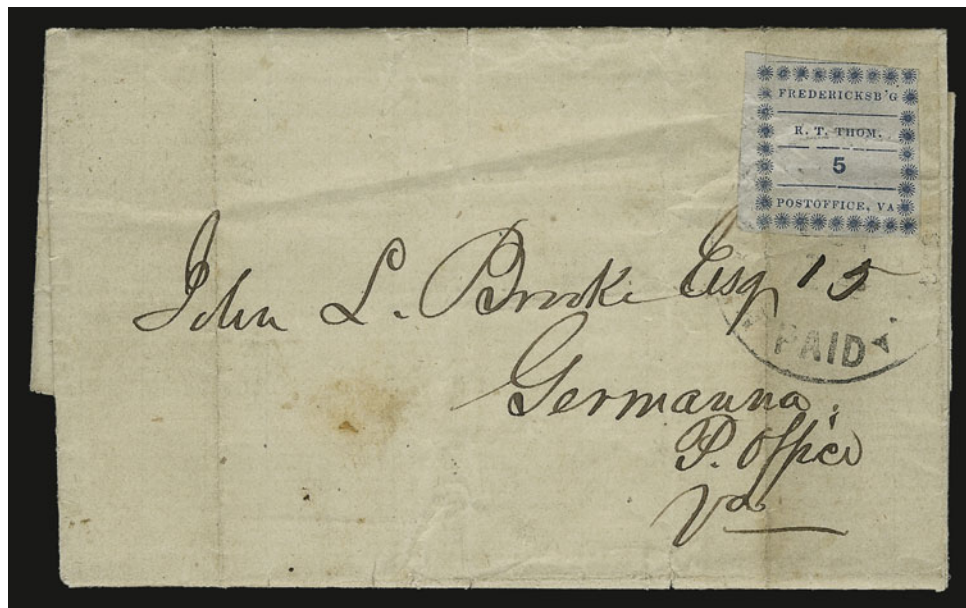 FREDERICKSB'G
R. T. THOM.
5
POSTOFFICE, VA
John L. Brooke Esq
15
PAID
Germanna,
P. Office
Va